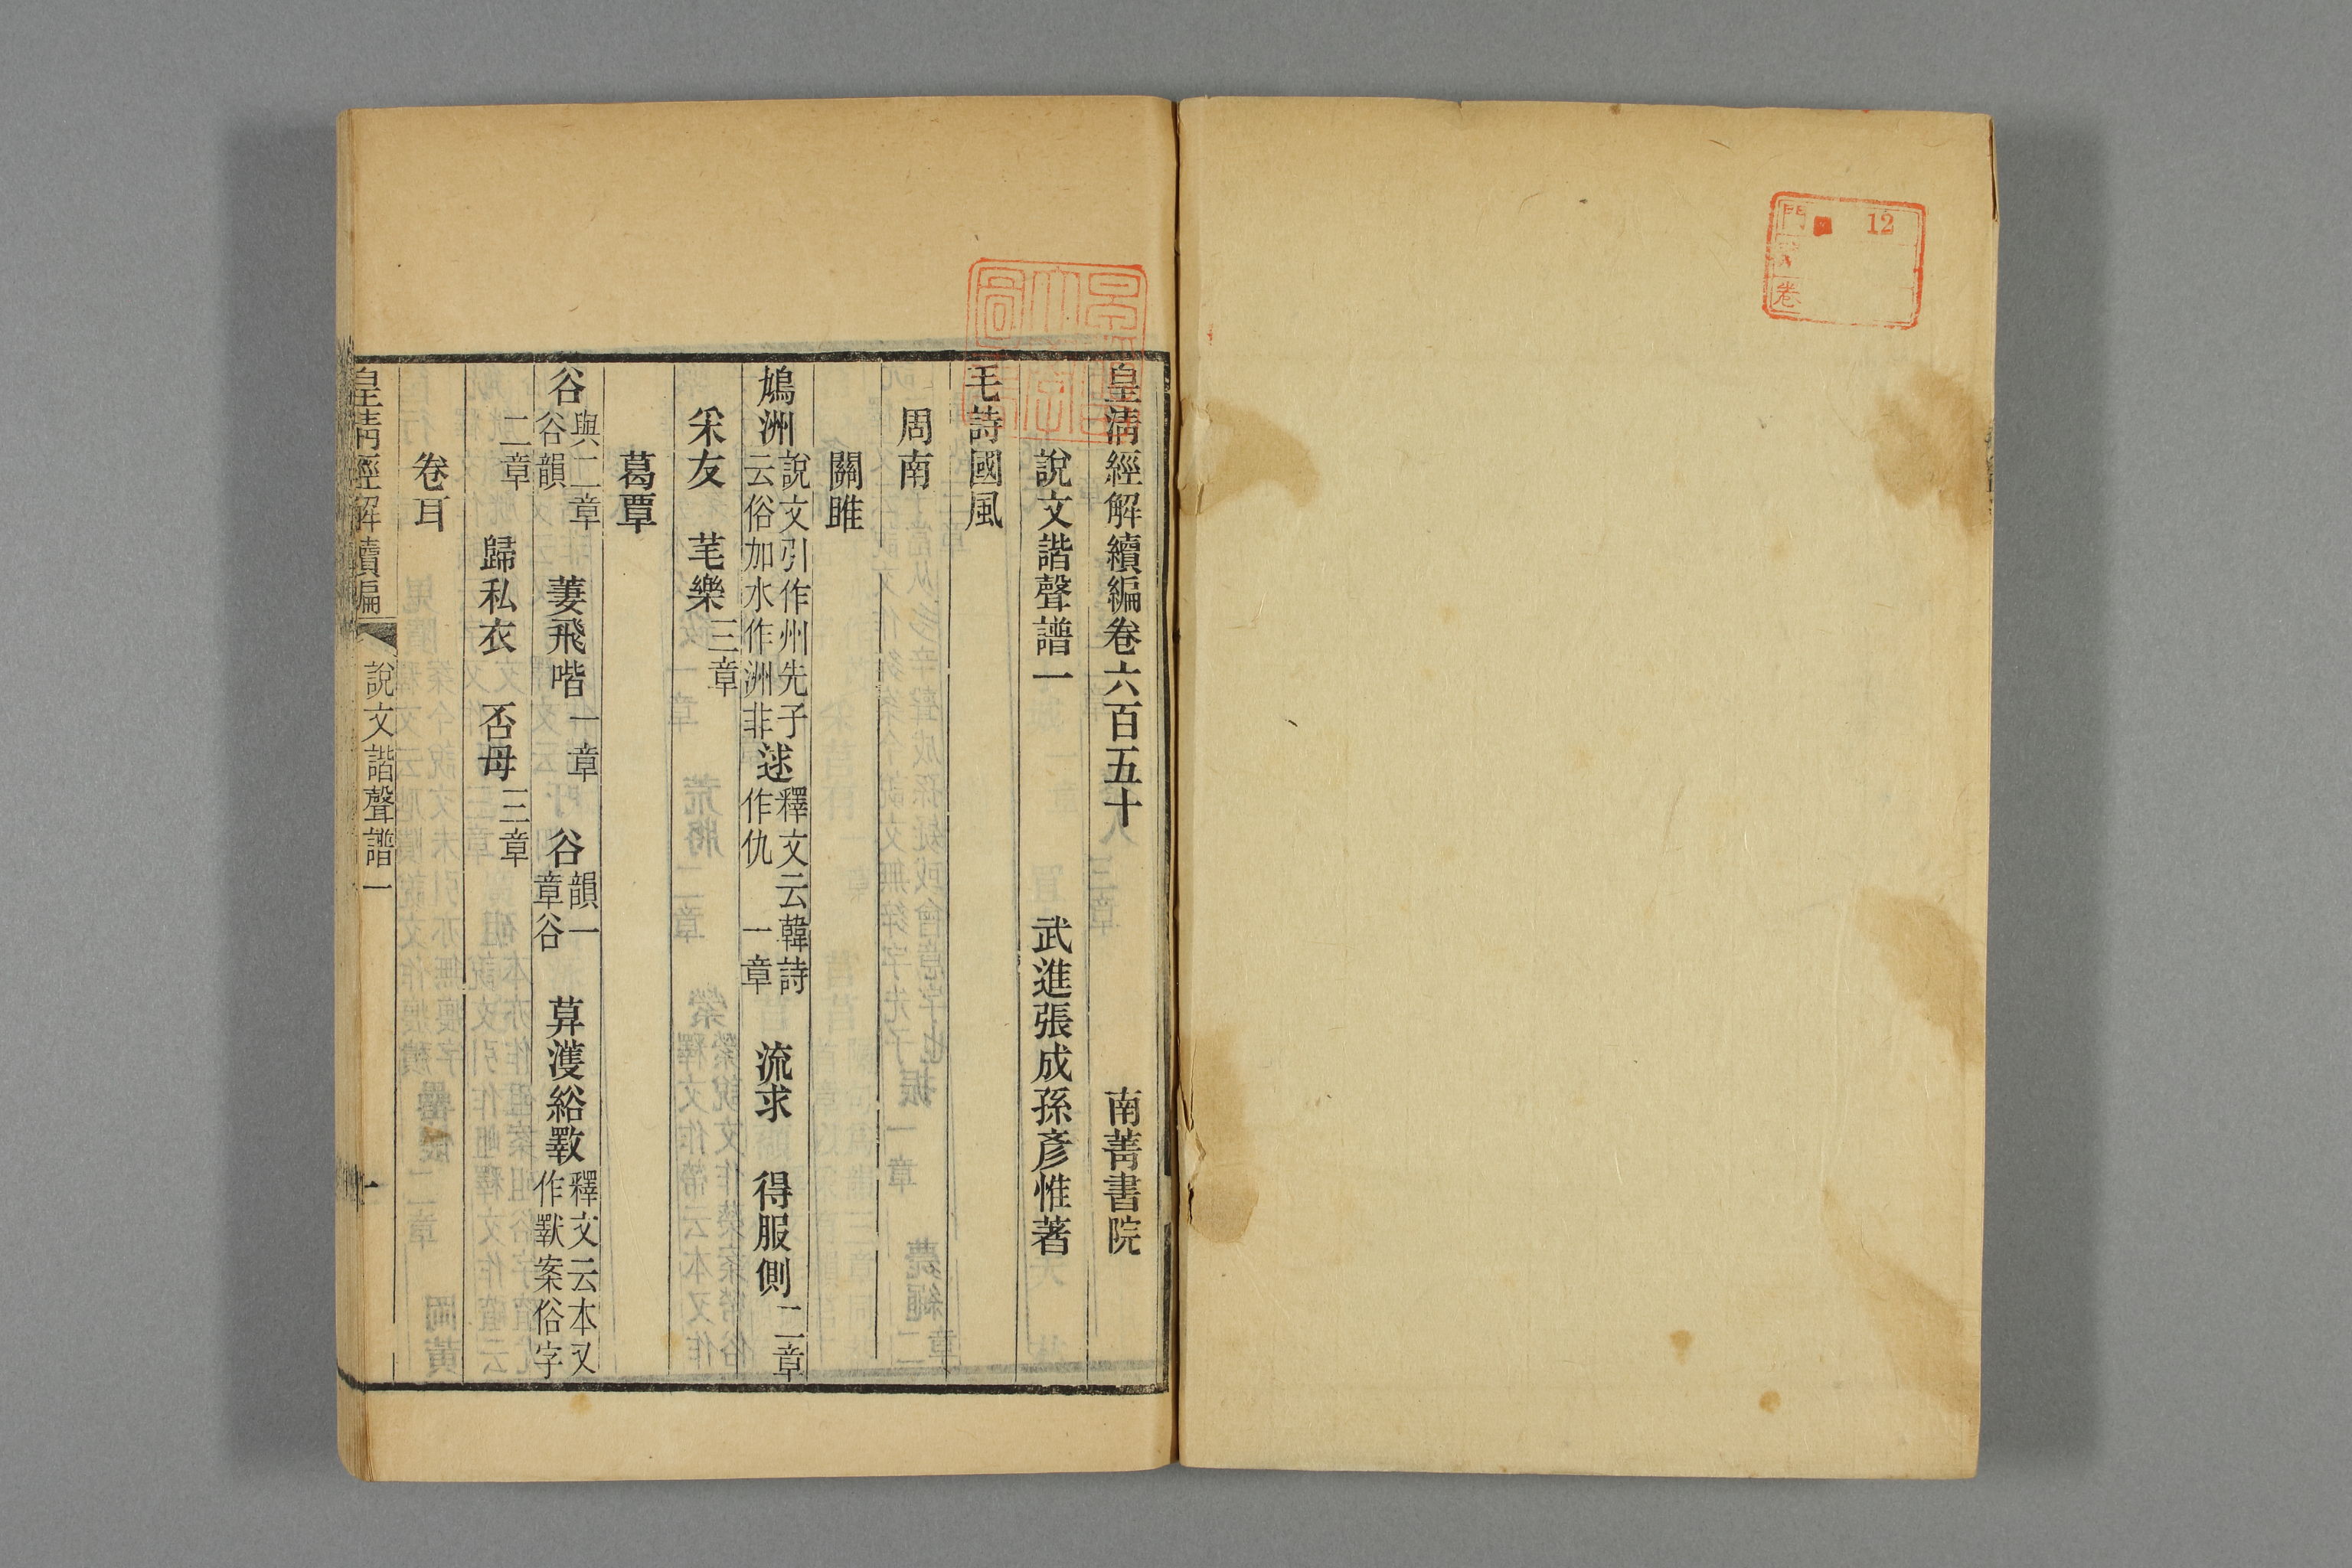 皇清經解續編卷六百五十 南菁書院
說文諧聲譜一 武進張成孫彥惟著
毛詩國風
周南
關雎
鳩洲說文引作州先子云俗加水作洲非逑釋文云韓詩作仇一章 流求 得服側二章
采友 芼樂三章
葛覃
谷與二章谷韻 萋飛喈一章 谷韻一章谷 莫濩綌斁釋文云本又作斁案俗字
二章 歸私衣 否母三章
卷耳
皇清經解續編 說文諧聲譜一 一
門 12
卷